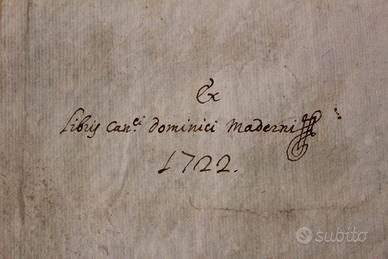 Ex
Libris Can.ci Dominici Maderni
1722.
subito